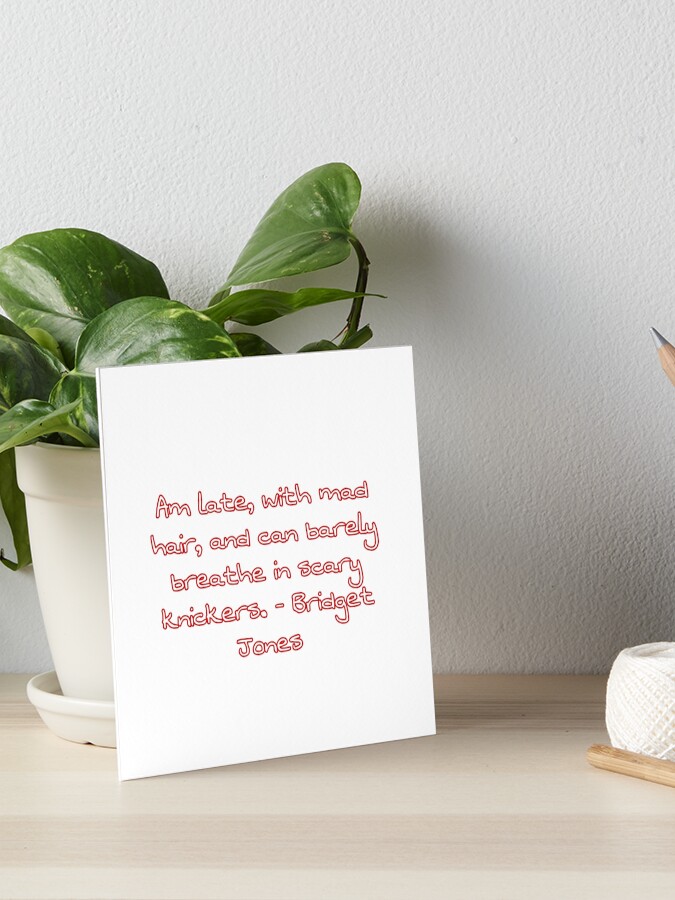 Am late, with mad
hair, and can barely
breathe in scary
knickers. - Bridget
Jones